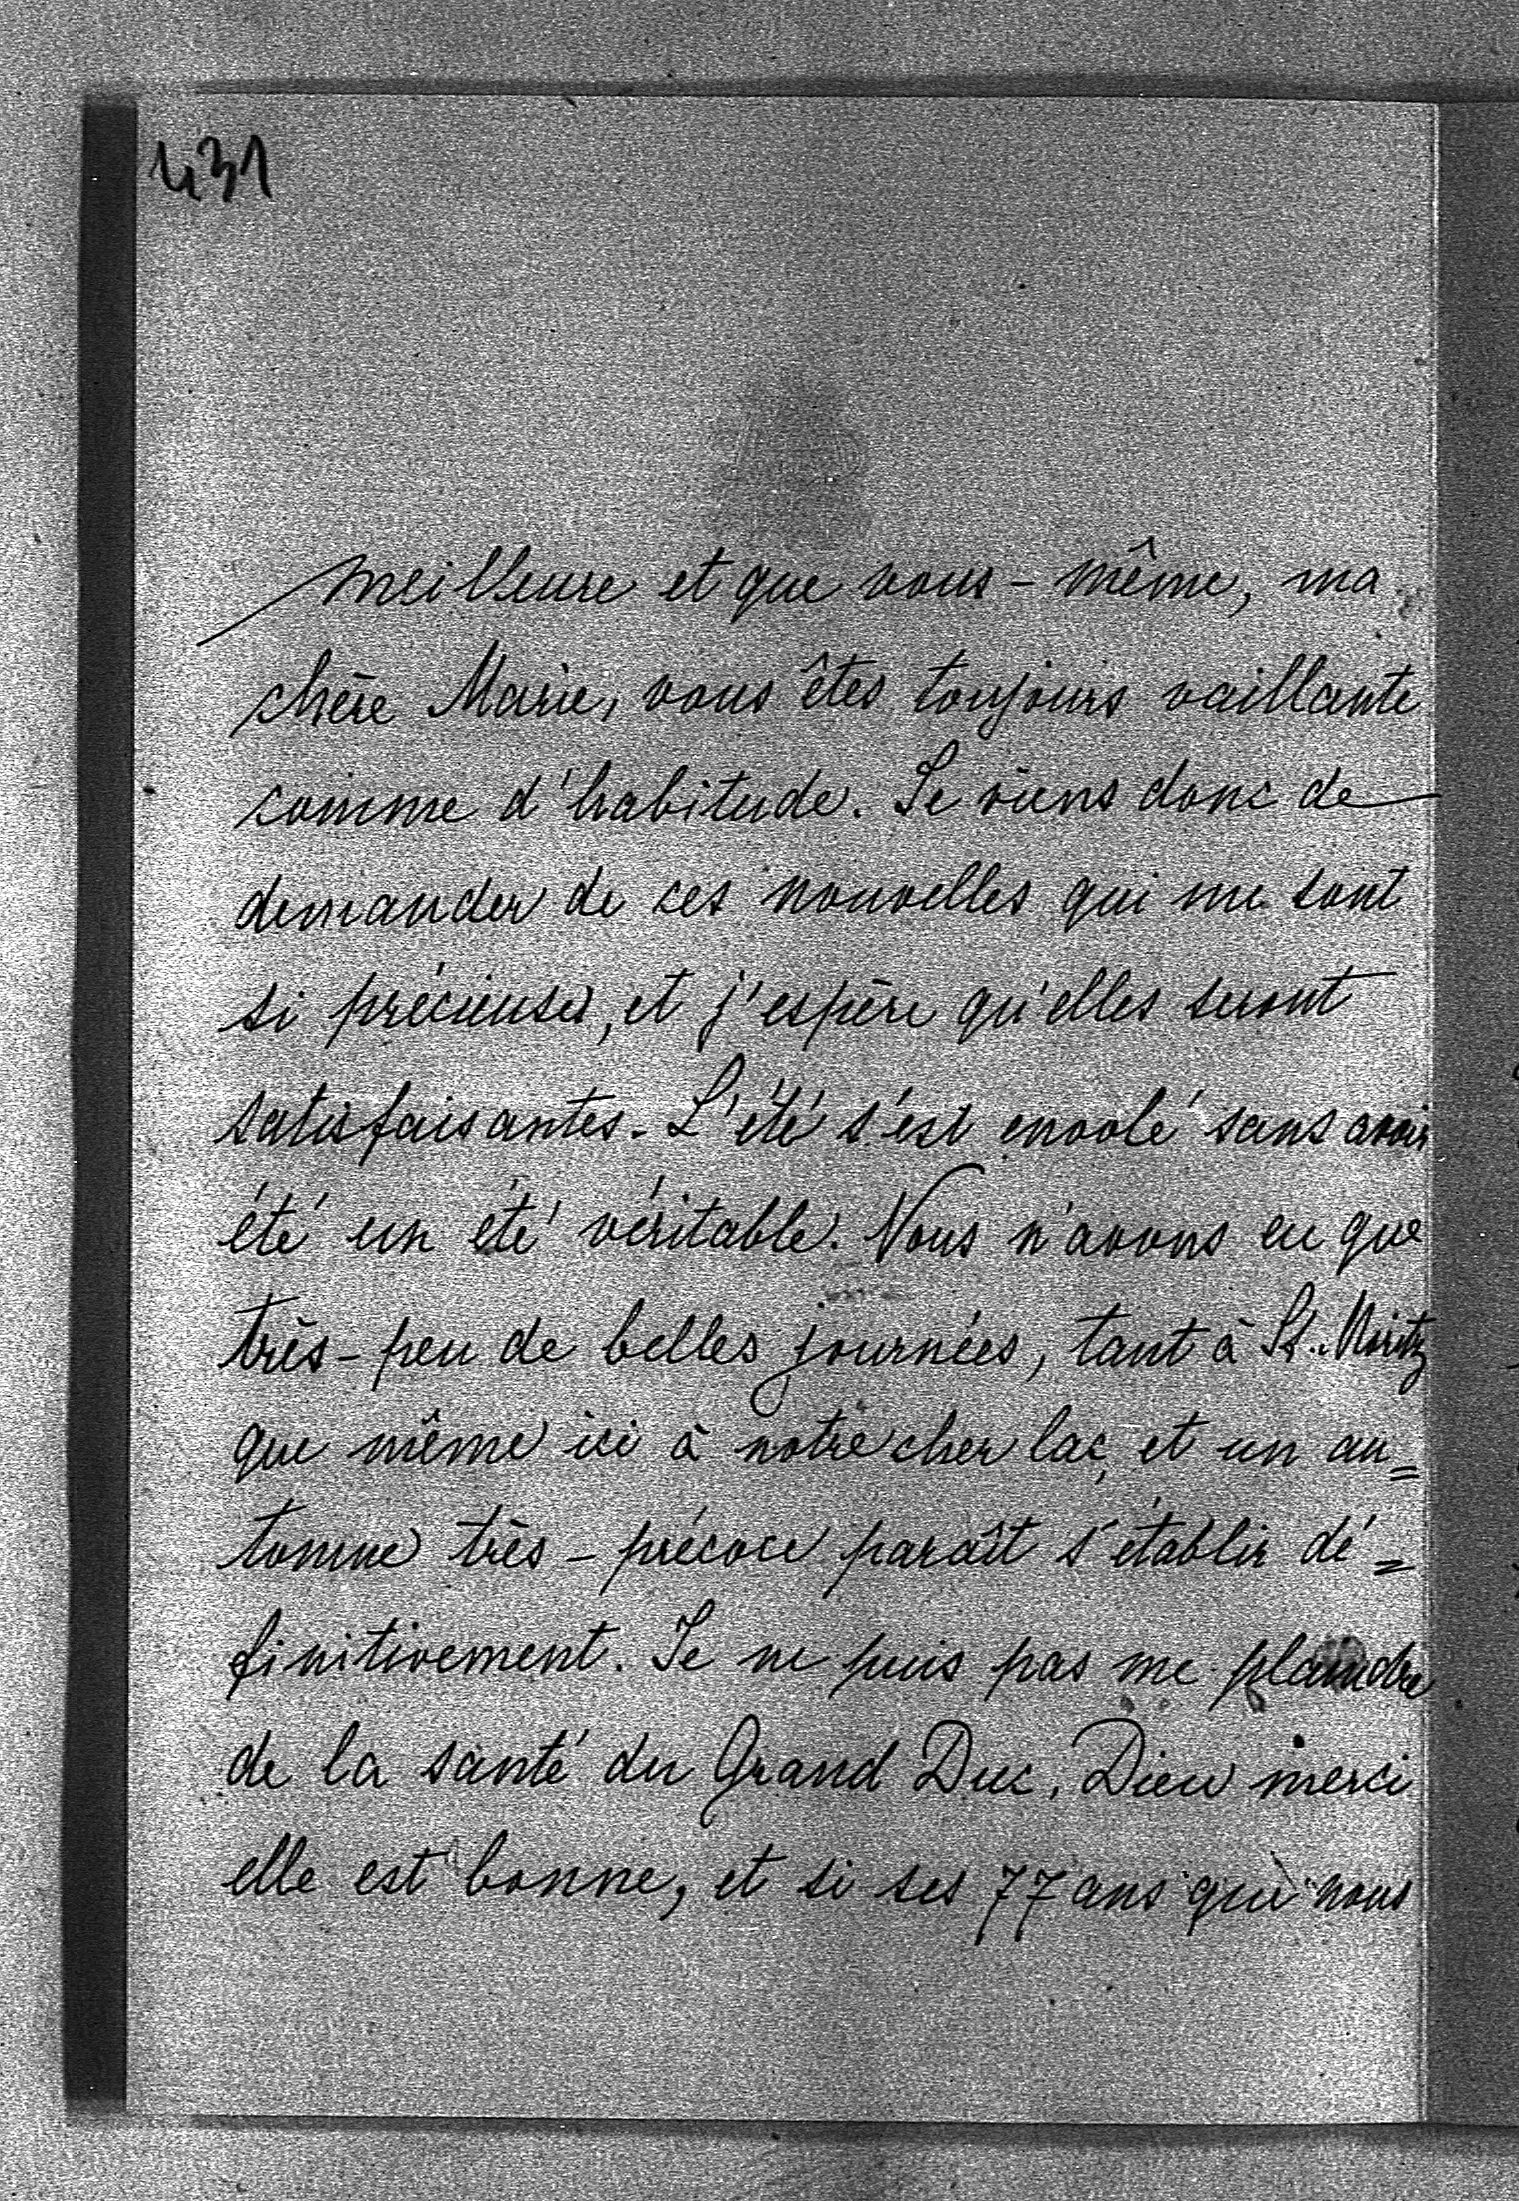 431
meilleure et que vous-même, ma
chère Marie, vous êtes toujours vaillante
comme d'habitude. Je viens donc de
demander de ces nouvelles qui me sont
si précieuses, et j'espère qu'elles seront
satisfaisantes. L'été s'est envolé sans avoir
été un été véritable. Nous n'avons eu que
très-peu de belles journées, tant à St. Moritz
que même ici à notre cher lac, et un au=
tomne très-précoce paraît s'établir dé=
finitivement. Je ne puis pas me plaindre
de la santé du Grand Duc, Dieu merci
elle est bonne, et si ses 77 ans que nous